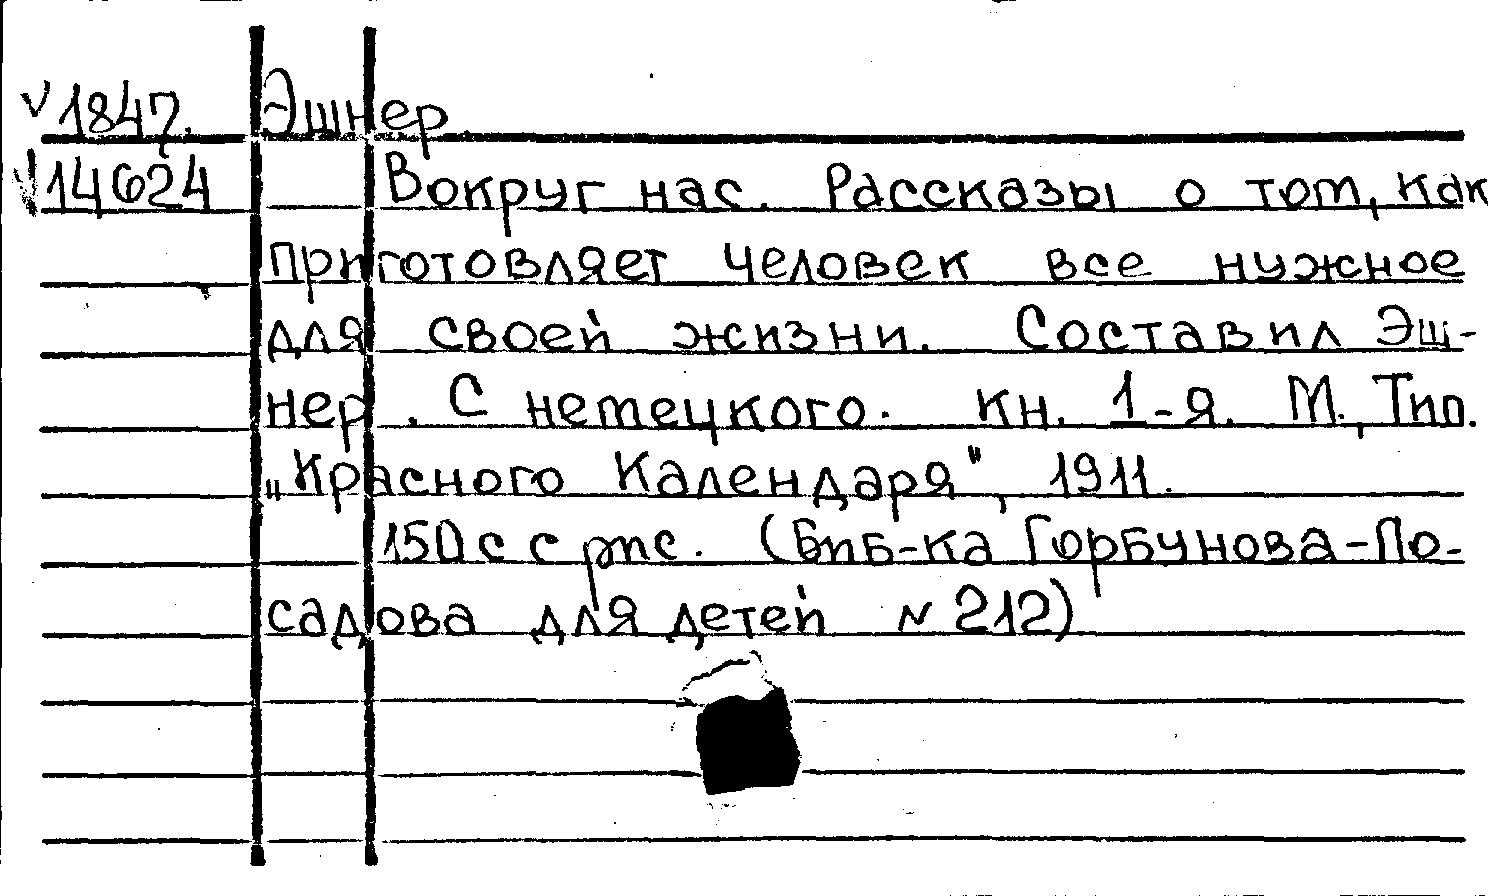 √ 1847. Эшнер
√ 14624 Вокруг нас. Рассказы о том, как
приготовляет человек все нужное
для своей жизни. Составил Эш-
нер. С немецкого. кн. 1-я. М., Тип.
„Красного Календаря", 1911.
150 с с рис. (Биб-ка Горбунова-По-
садова для детей N 212)